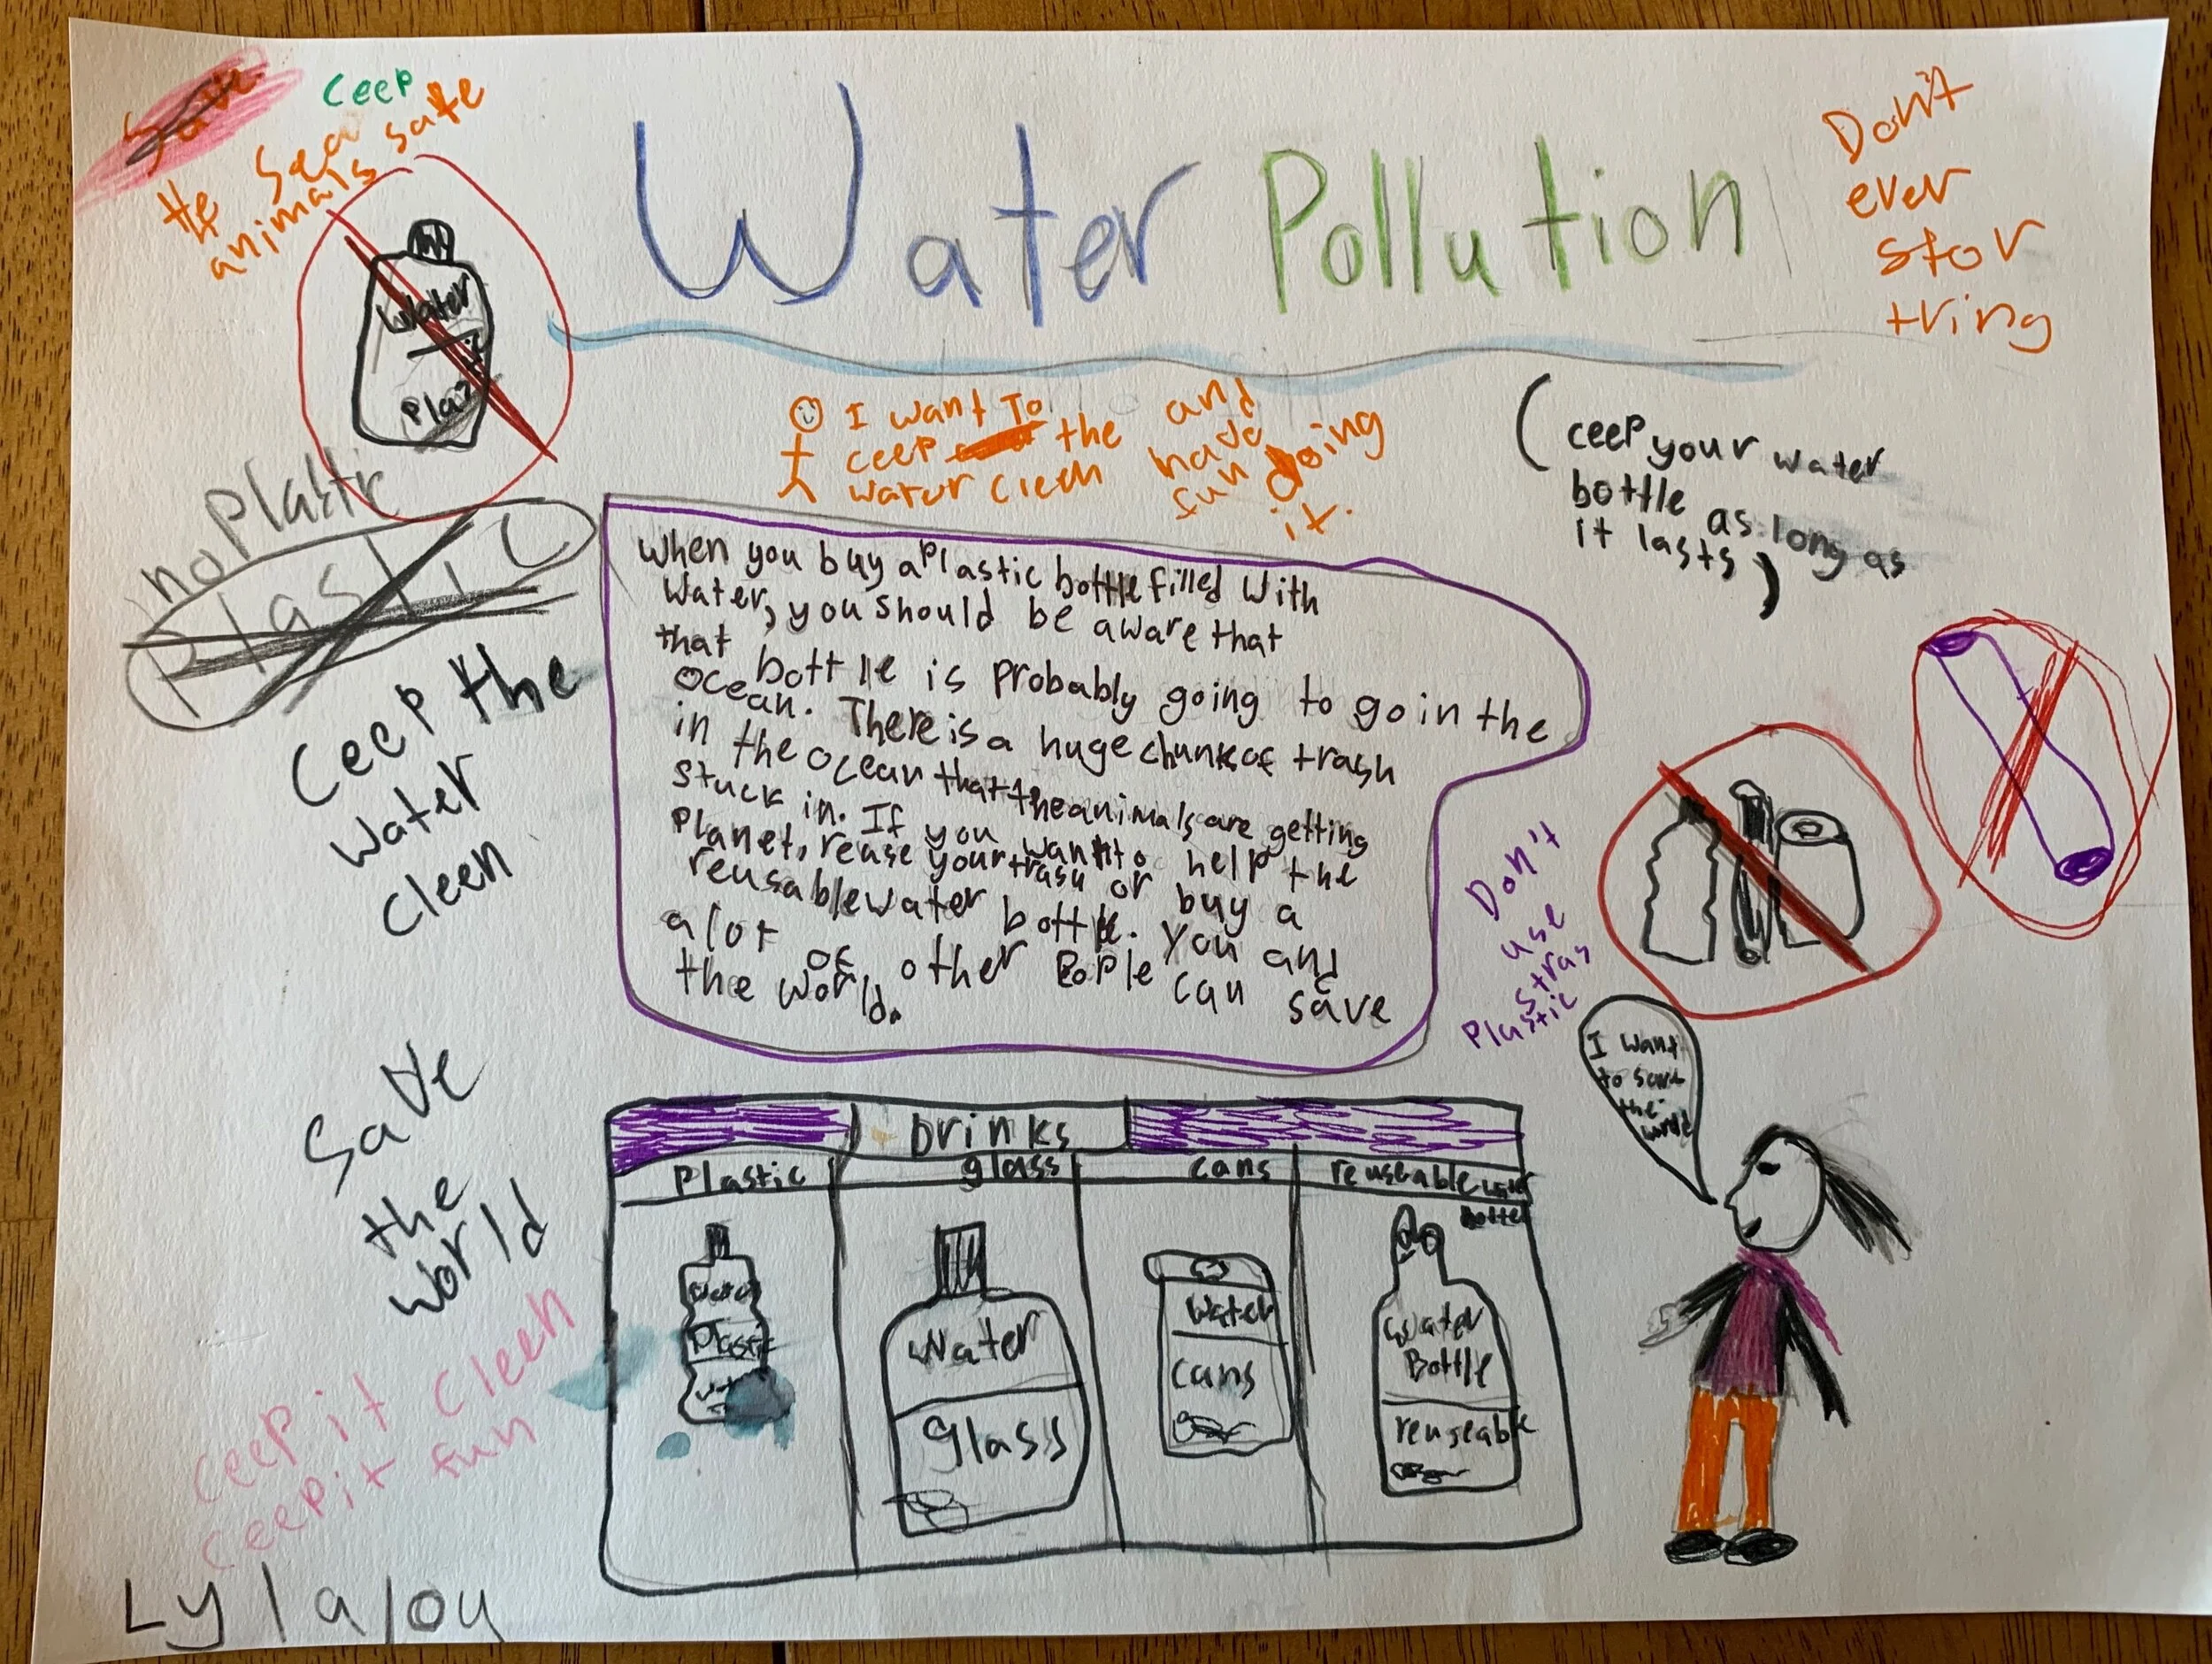 Ceep
the sea
animals safe
Water Pollution
Don't
ever
stor
tring
Water
Plaz
no Plastic
Plastic
I want To
ceep the
water cleen
and
have
fun doing
it.
(ceep your water
bottle as long as
it lasts)
When you buy a Plastic bottle filled With
Water, you should be aware that
that bottle is probably going to go in the
ocean. There is a huge chunks of trash
in the ocean that the animals are getting
stuck in. If you want to help the
Planet, reuse your trash or buy a
reusable water bottle. You and
a lot of other People can save
the world.
Ceep the
Water
Cleen
Don't
use
stras
Plastic
Save
the
world
I want
to save
the
world
Drinks
Plastic
glass
cans
reuseable water
bottel
Water
Plastic
Water
Glass
Water
cans
Water
Bottle
reuseable
Ceep it Cleen
Ceep it fun
Lyla Joy